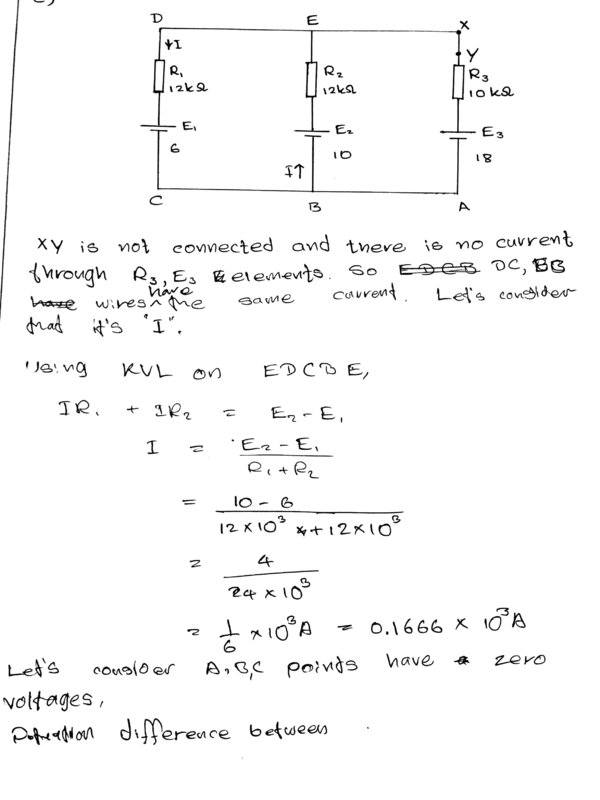 D E X
↓I Y
R₁ R₂ R₃
12kΩ 12kΩ 10 kΩ
E₁ E₂ E₃
6 10 18
I↑
C B A
XY is not connected and there is no current
through R₃, E₃ elements. So EDCB DC, EB
have wires have the same current. Let's consider
that it's "I".
Using KVL on EDCBE,
IR₁ + IR₂ = E₂ - E₁
I = E₂ - E₁ / R₁ + R₂
= 10 - 6 / 12 × 10³ + 12 × 10³
= 4 / 24 × 10³
= 1/6 × 10³A = 0.1666 × 10⁻³A
Let's consider A, B, C points have zero
voltages,
difference between